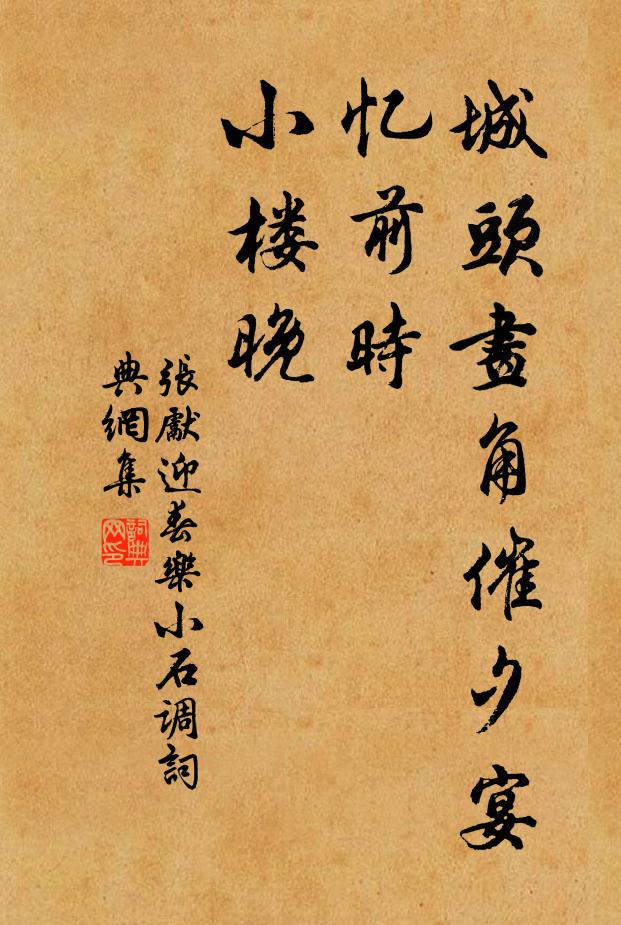 城頭畫角催夕宴
忆前時
小楼晚
張獻迎春樂小石调詞
典網集
詞典
网印